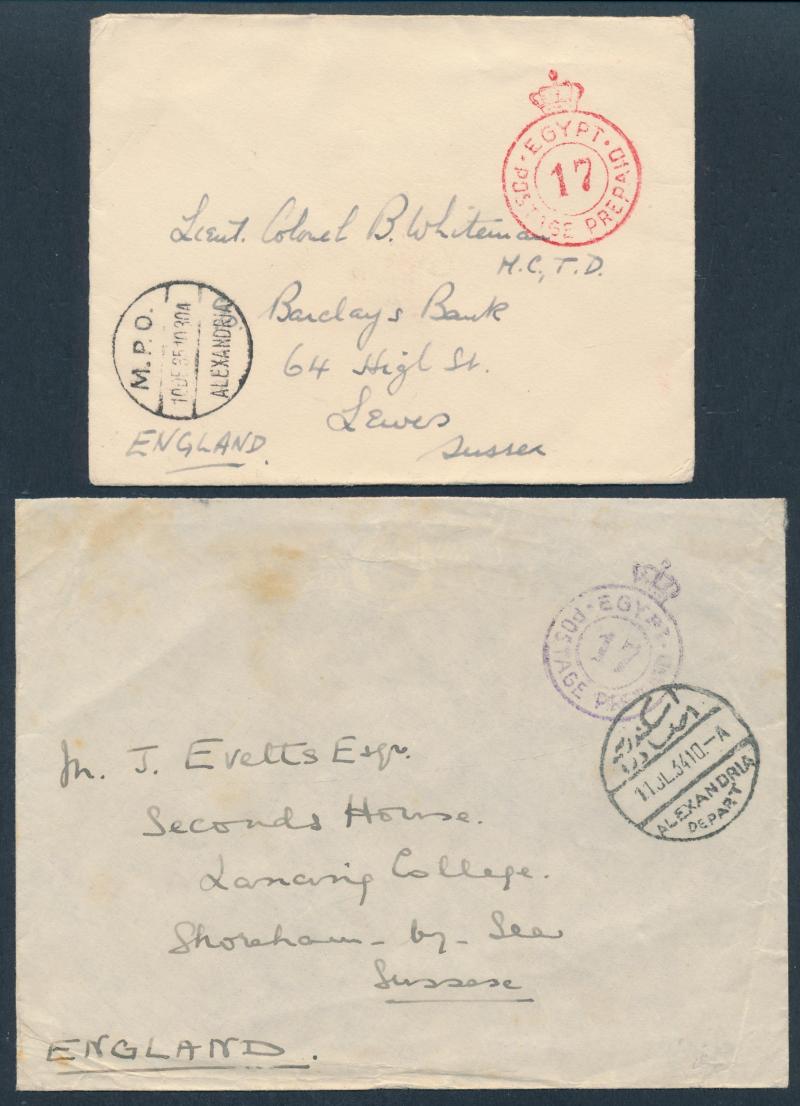 · EGYPT ·
POSTAGE PREPAID
17
Lieut. Colonel B. Whiteman
M.C., T.D.
Barclays Bank
64 High St.
Lewes
Sussex
ENGLAND
M.P.O.
10 DE 35 10 30 A
ALEXANDRIA
· EGYPT ·
POSTAGE PREPAID
17
اسكندرية
11.JL.34 10.-A
ALEXANDRIA
DEPART
J. Evetts Esqr.
Seconds House.
Lancing College.
Shoreham-by-Sea
Sussex
ENGLAND.